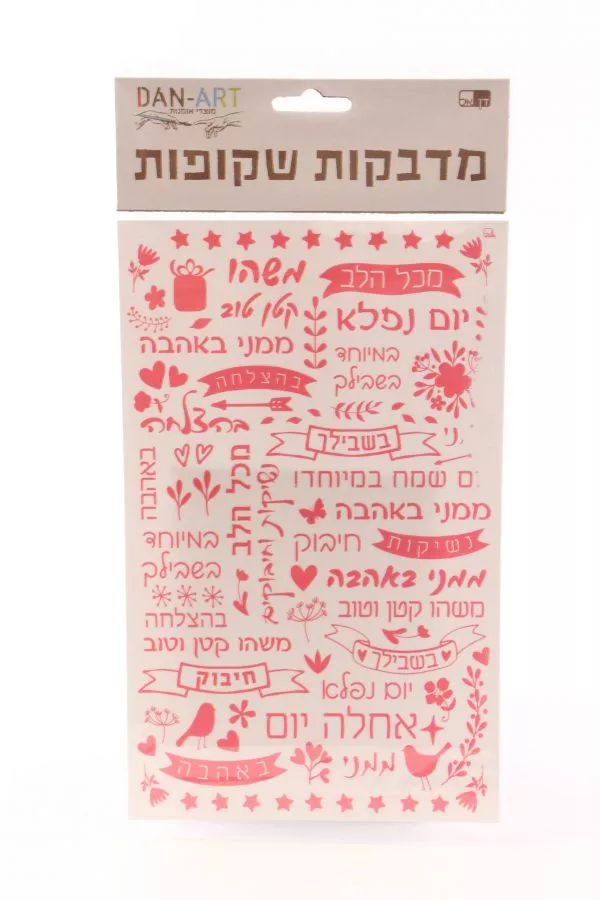 DAN-ART
מוצרי אומנות
דן אל
מדבקות שקופות
משהו
קטן טוב
ממני באהבה
מכל הלב
יום נפלא
במיוחד
בשבילך
בהצלחה
בהצלחה
בשבילך
באהבה
מכל הלב
נשיקות וחיבוקים
ם שמח במיוחד!
ממני באהבה
במיוחד
בשבילך
חיבוק
נשיקות
ממני באהבה
בהצלחה
משהו קטן וטוב
משהו קטן וטוב
בשבילך
חיבוק
יום נפלא
אחלה יום
באהבה
ממני